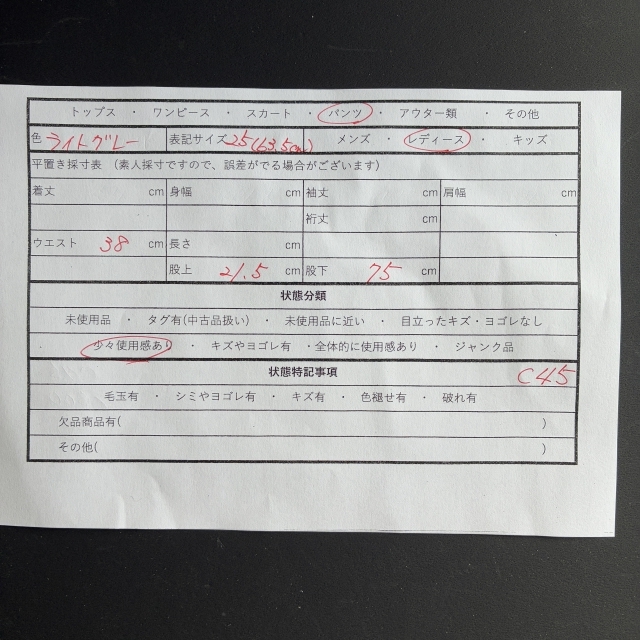 トップス ・ ワンピース ・ スカート ・ パンツ ・ アウター類 ・ その他
色 ライトグレー 表記サイズ 25(63.5cm) メンズ ・ レディース ・ キッズ
平置き採寸表 （素人採寸ですので、誤差がでる場合がございます）
着丈 cm 身幅 cm 袖丈 cm 肩幅 cm
裄丈 cm
ウエスト 38 cm 長さ cm
股上 21.5 cm 股下 75 cm
状態分類
未使用品 ・ タグ有(中古品扱い) ・ 未使用品に近い ・ 目立ったキズ・ヨゴレなし
少々使用感あり ・ キズやヨゴレ有 ・全体的に使用感あり ・ ジャンク品
状態特記事項 C45
毛玉有 ・ シミやヨゴレ有 ・ キズ有 ・ 色褪せ有 ・ 破れ有
欠品商品有( )
その他( )